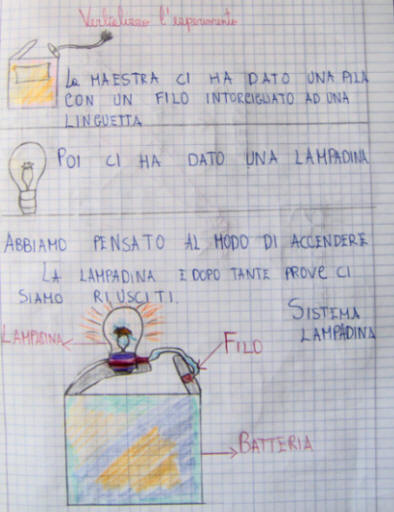 Verbalizzo l'esperimento
LA MAESTRA CI HA DATO UNA PILA
CON UN FILO INTORCIGLIATO AD UNA
LINGUETTA
POI CI HA DATO UNA LAMPADINA
ABBIAMO PENSATO AL MODO DI ACCENDERE
LA LAMPADINA E DOPO TANTE PROVE CI
SIAMO RIUSCITI.
SISTEMA
LAMPADINA
LAMPADINA
FILO
BATTERIA